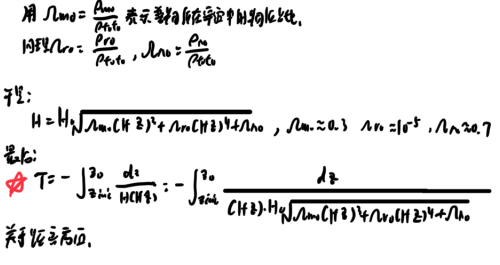 用 Ωm₀ = ρm₀/ρtot₀ 表示当前所在宇宙中的物质占比.
同理Ωr₀ = ρr₀/ρtot₀ , ΩΛ₀ = ρΛ₀/ρtot₀
于是:
H = H₀√(Ωm₀(1+z)³+Ωr₀(1+z)⁴+ΩΛ₀) , Ωm₀≈0.3 Ωr₀≈10⁻⁵ , ΩΛ≈0.7
最后:
☆ T = -∫_{z_init}^{z₀} dz/(H(1+z)) = -∫_{z_init}^{z₀} dz/((1+z)·H₀√(Ωm₀(1+z)³+Ωr₀(1+z)⁴+ΩΛ₀))
关于